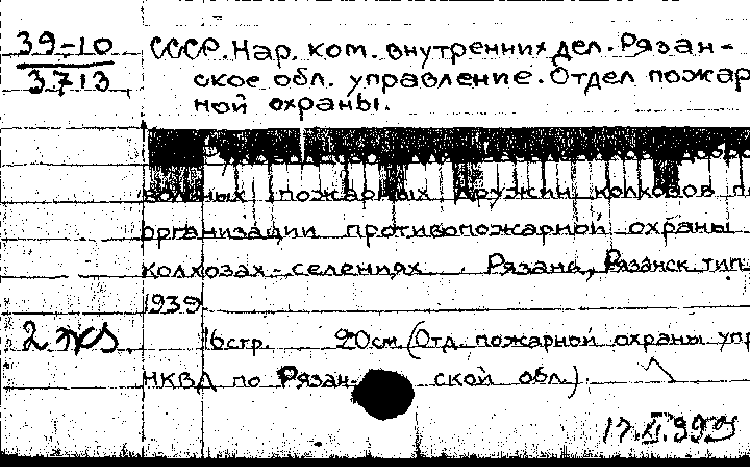 39-10
3713
СССР. Нар. ком. внутренних дел. Рязан-
ское обл. управление. Отдел пожар
ной охраны.
вольных пожарных дружин колхозов по
организации противопожарной охраны
колхозах-селениях. Рязань, Рязанск. тип.
1939
2 экз. 16 стр. 20 см. (Отд. пожарной охраны упр
НКВД по Рязан- ской обл.).